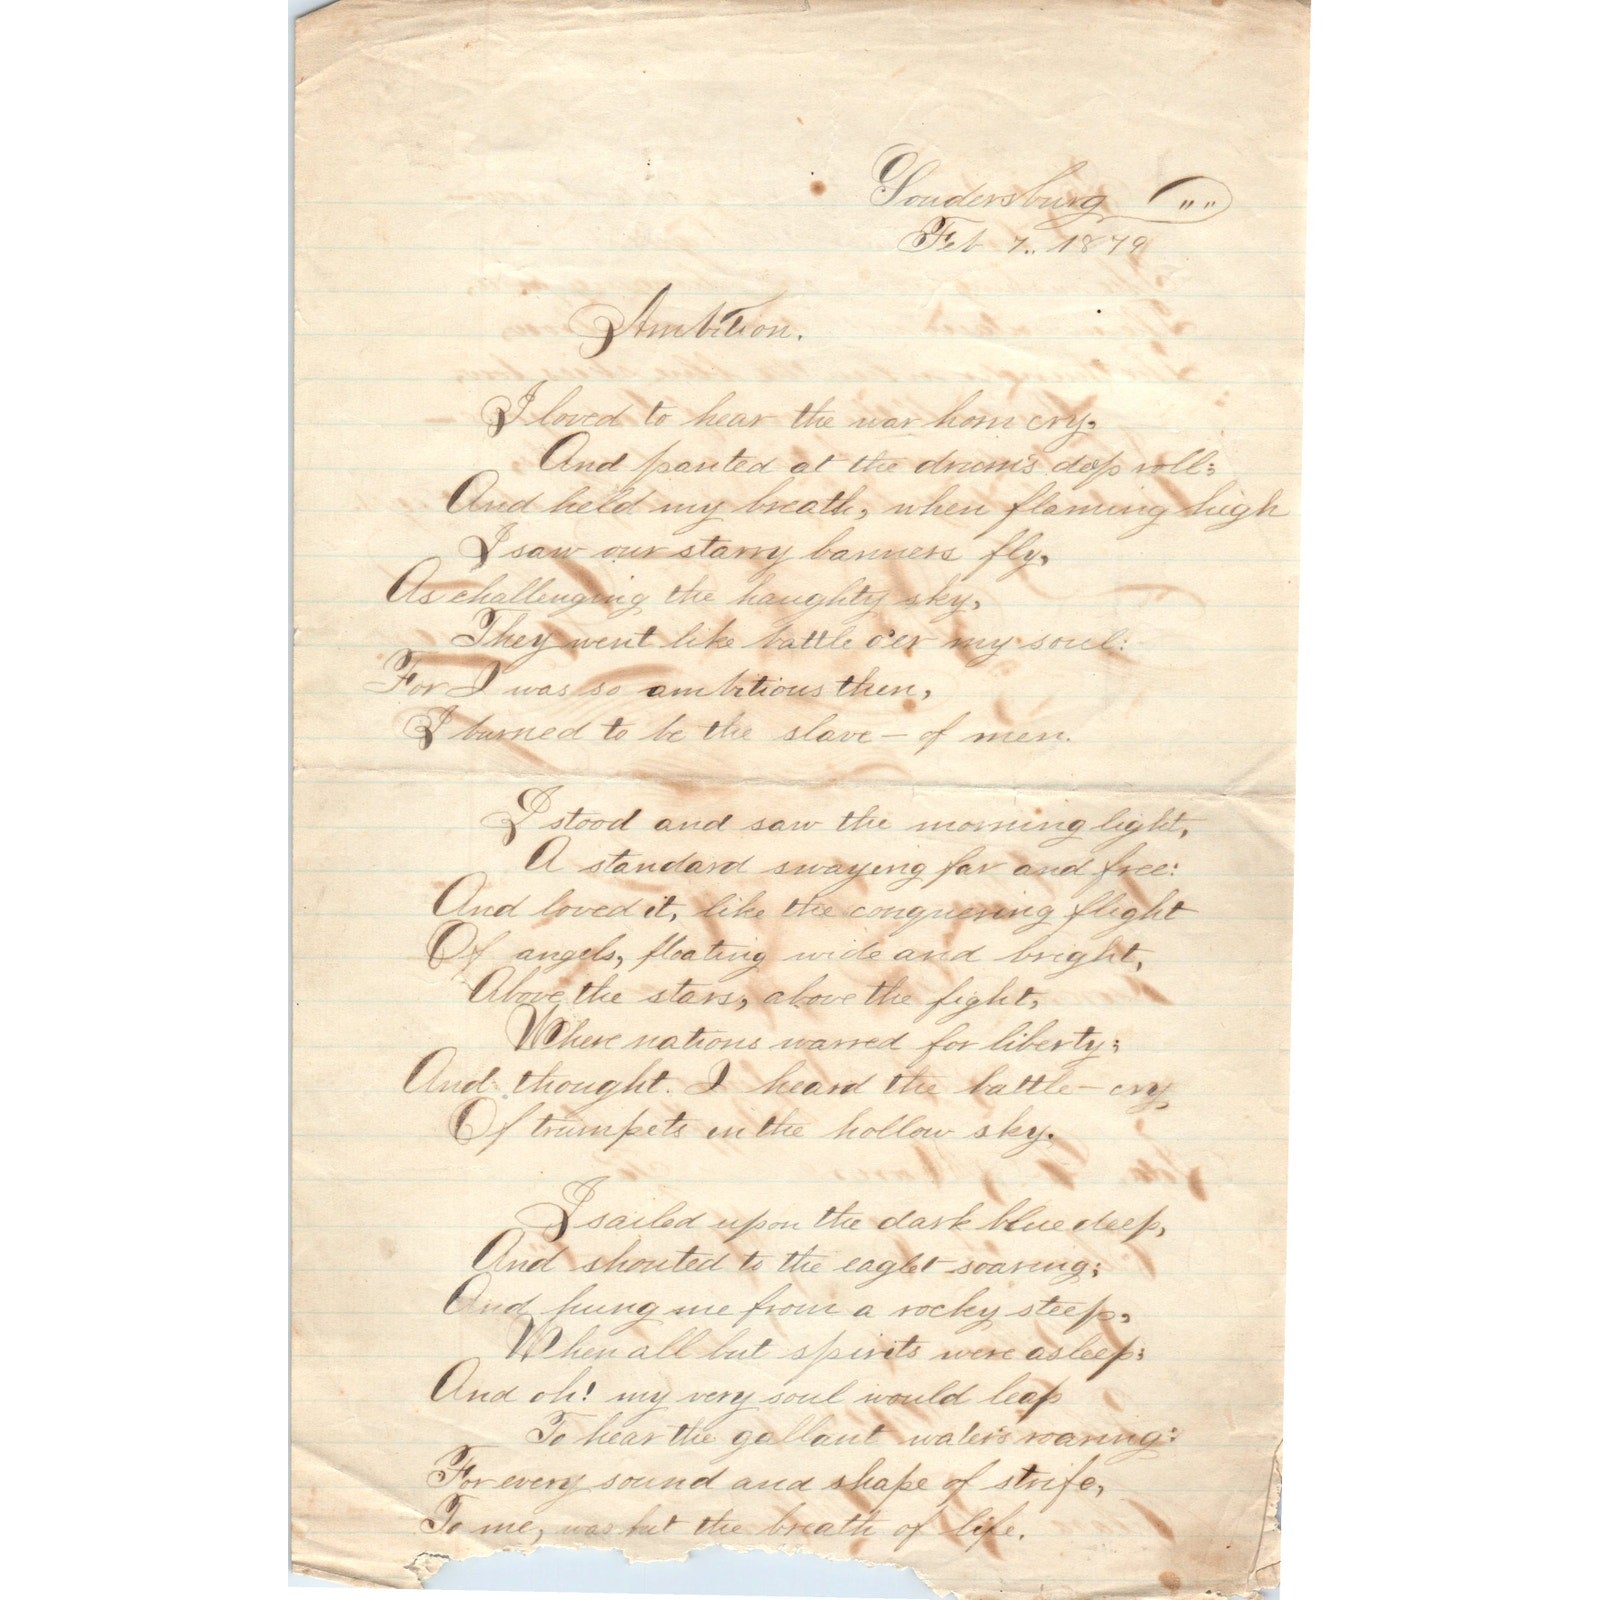 Soudersburg " "
Feb 7., 1879
Ambition.
I loved to hear the war horn cry,
And panted at the drum's deep roll;
And held my breath, when flaming high
I saw our starry banners fly,
As challenging the haughty sky,
They went like battle o'er my soul:
For I was so ambitious then,
I burned to be the slave - of men.
I stood and saw the morning light,
A standard swaying far and free:
And loved it, like the conquering flight
Of angels, floating wide and bright,
Above the stars, above the fight,
Where nations warred for liberty;
And thought I heard the battle-cry
Of trumpets in the hollow sky.
I sailed upon the dark blue deep,
And shouted to the eaglet soaring;
And hung me from a rocky steep,
When all but spirits were asleep;
And oh! my very soul would leap
To hear the gallant waters roaring:
For every sound and shape of strife,
To me, was but the breath of life.